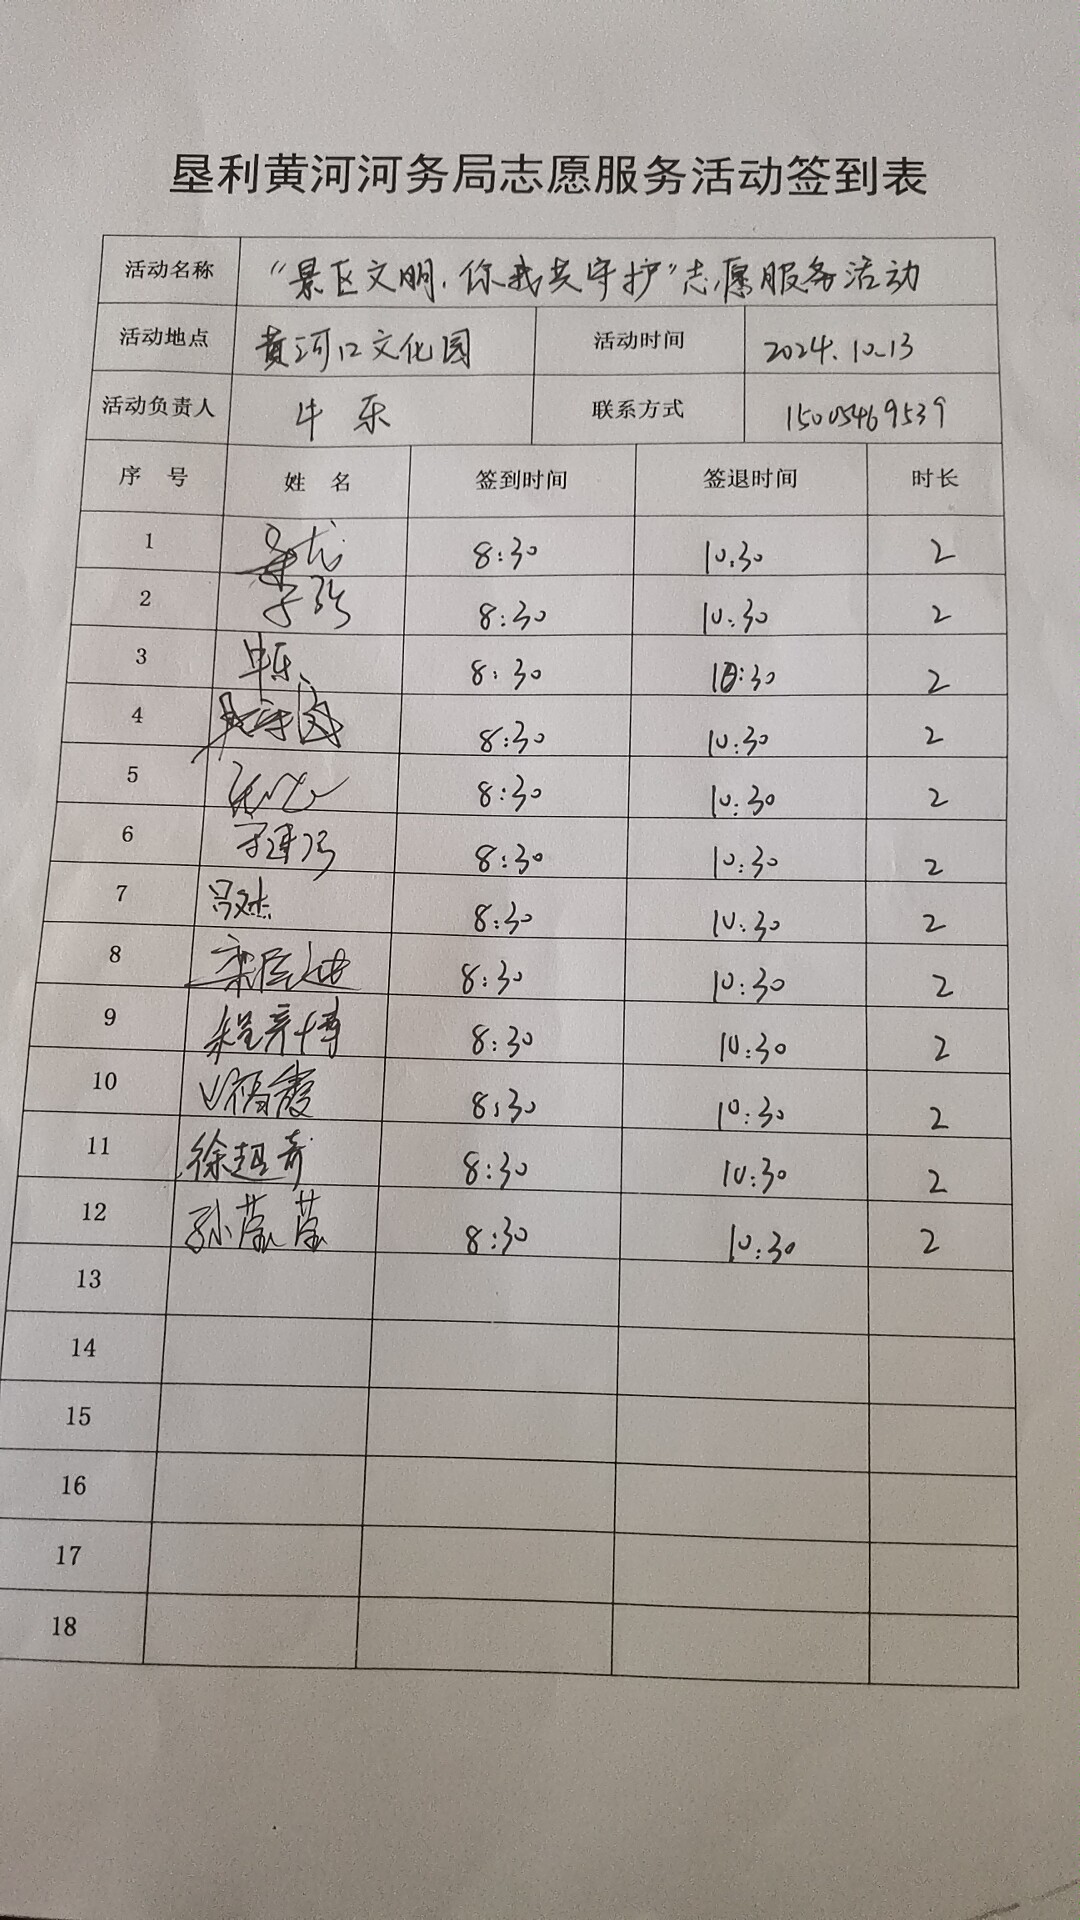 垦利黄河河务局志愿服务活动签到表
活动名称 "景区文明,你我共守护"志愿服务活动
活动地点 黄河口文化园 活动时间 2024.10.13
活动负责人 牛乐 联系方式 15005469539
序 号 姓 名 签到时间 签退时间 时长
1 8:30 10:30 2
2 8:30 10:30 2
3 牛乐 8:30 10:30 2
4 8:30 10:30 2
5 8:30 10:30 2
6 8:30 10:30 2
7 8:30 10:30 2
8 8:30 10:30 2
9 8:30 10:30 2
10 8:30 10:30 2
11 徐超奇 8:30 10:30 2
12 孙莹莹 8:30 10:30 2
13
14
15
16
17
18